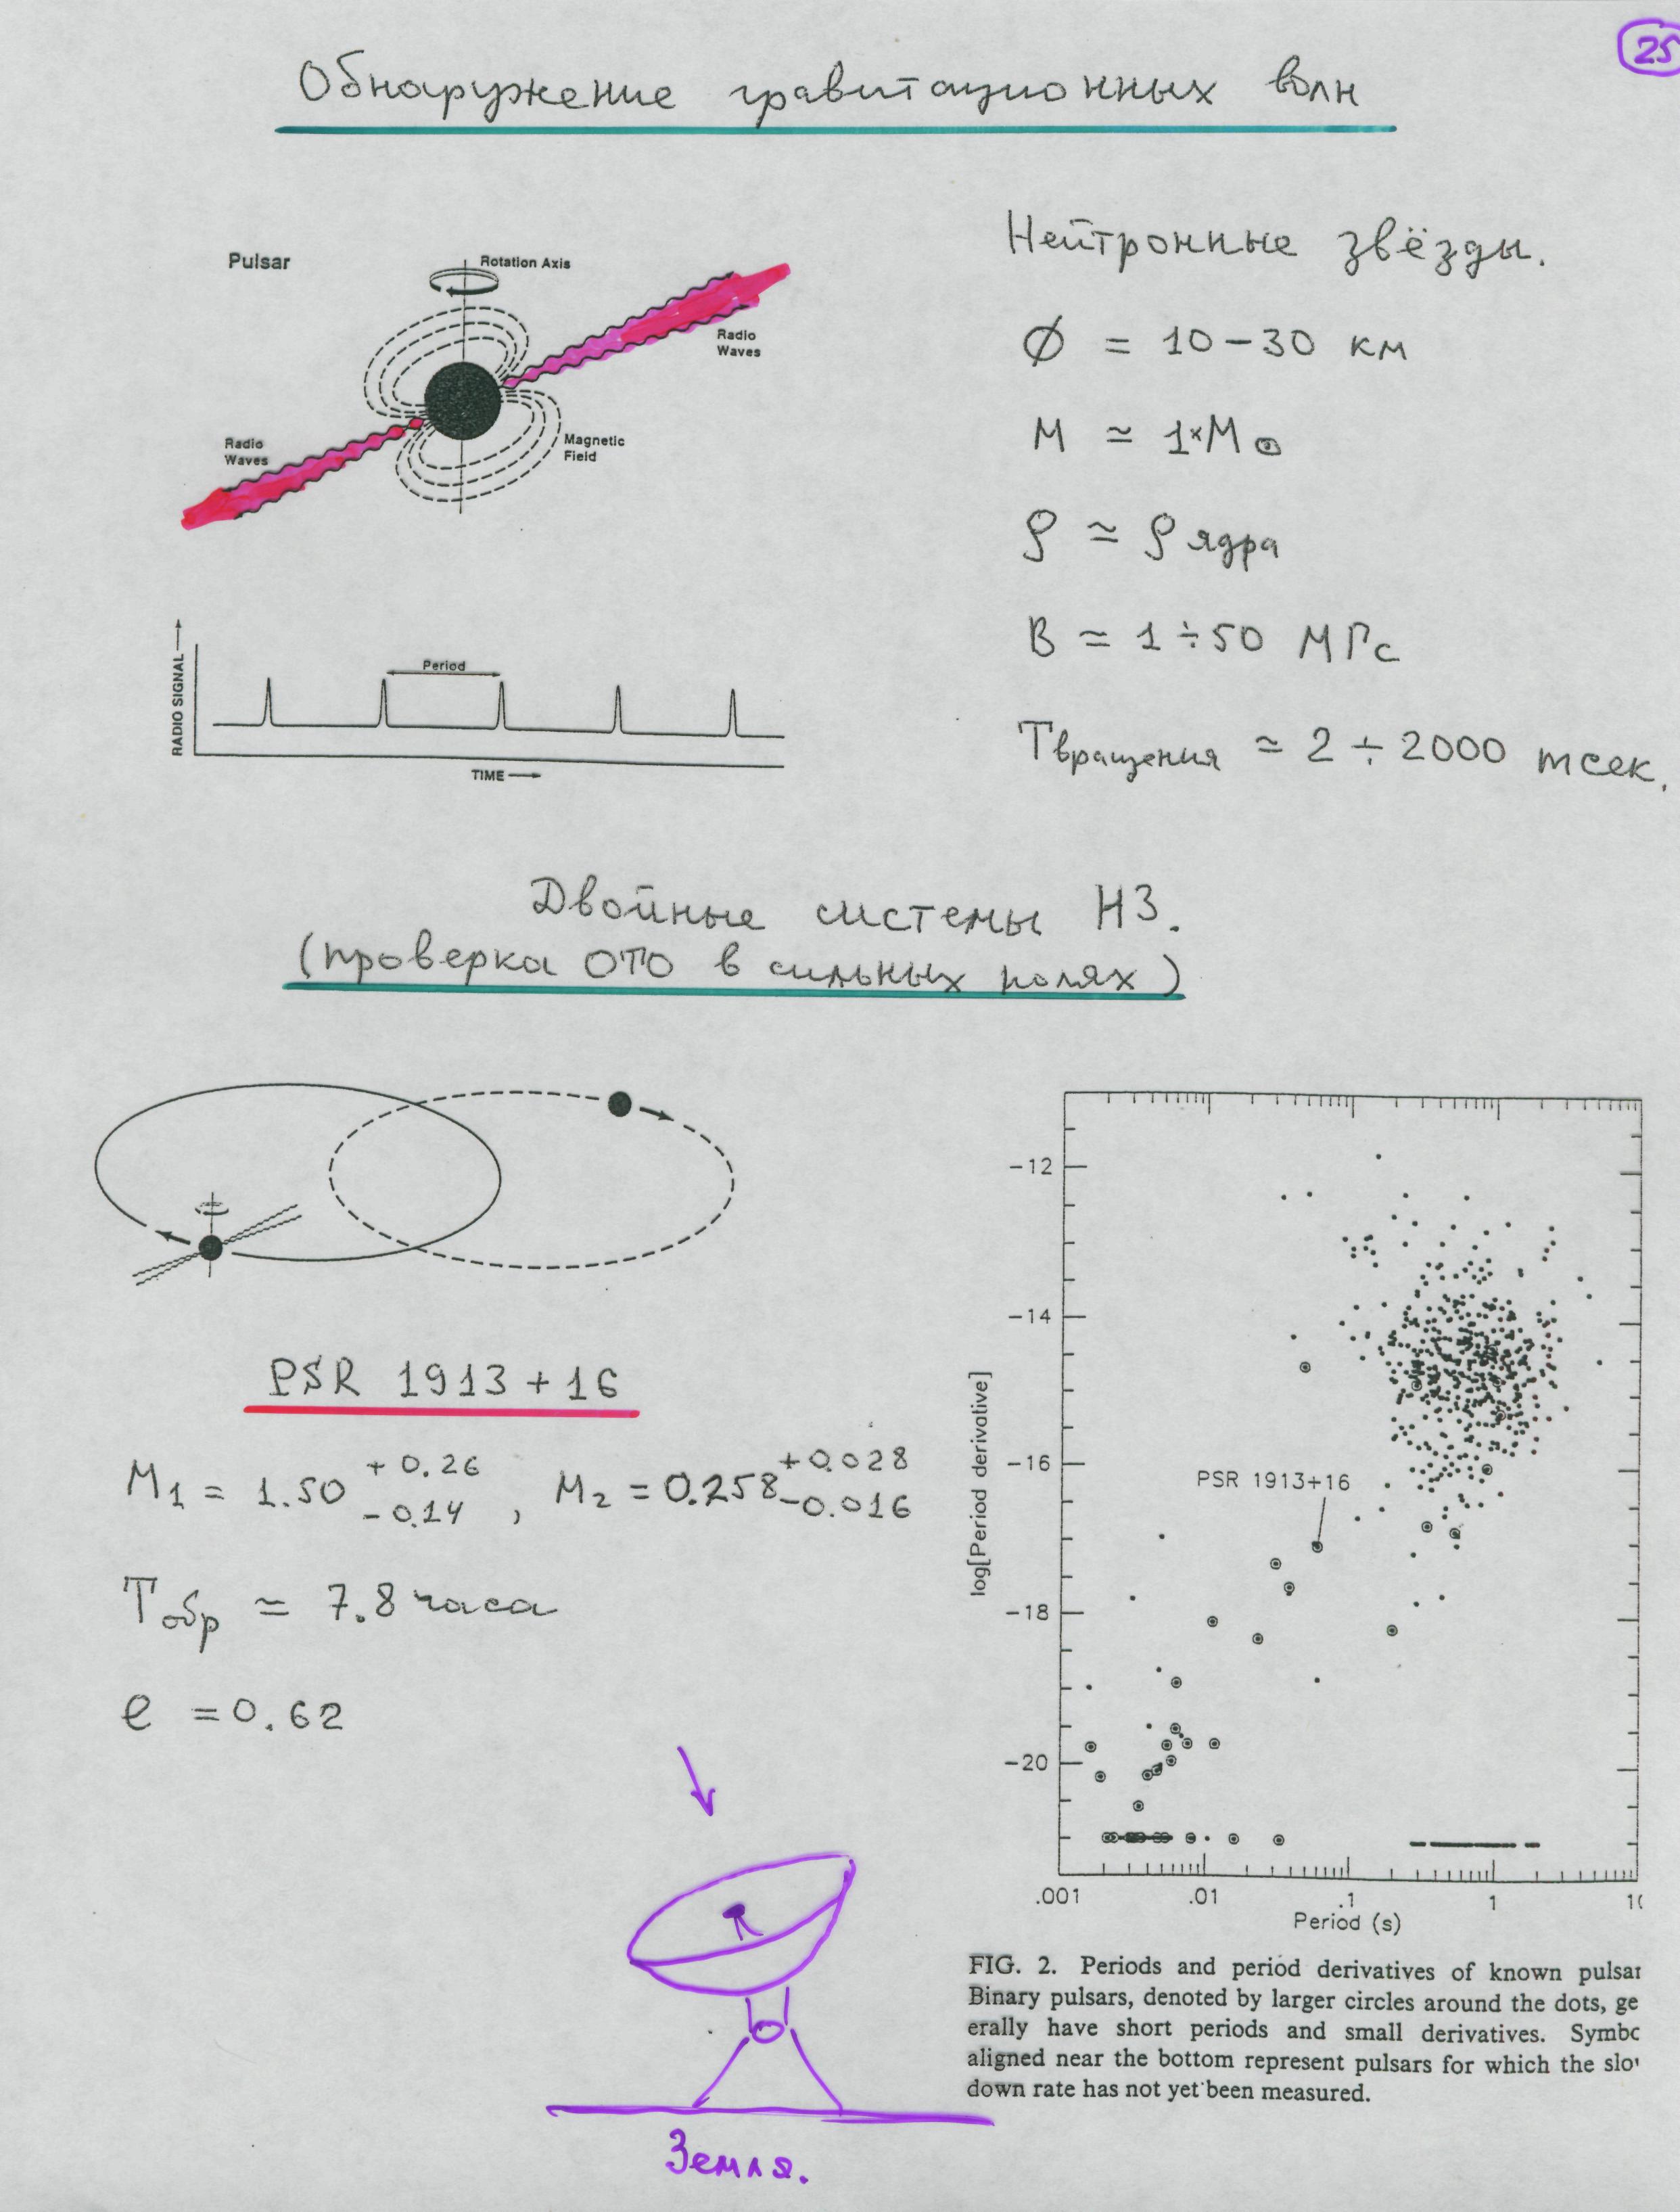 25
Обнаружение гравитационных волн
Pulsar
Rotation Axis
Radio
Waves
Radio
Waves
Magnetic
Field
Нейтронные звёзды.
Ø = 10-30 км
M ≃ 1×M⊙
ρ ≃ ρ ядра
B ≃ 1÷50 МГс
T вращения ≃ 2 ÷ 2000 mсек.
RADIO SIGNAL
Period
TIME
Двойные системы НЗ.
(проверка ОТО в сильных полях)
PSR 1913+16
M1 = 1.50 +0.26 -0.14, M2 = 0.258 +0.028 -0.016
Tобр ≃ 7.8 часа
e = 0.62
Земля.
log[Period derivative]
-12
-14
-16
-18
-20
PSR 1913+16
.001 .01 .1 1 10
Period (s)
FIG. 2. Periods and period derivatives of known pulsar
Binary pulsars, denoted by larger circles around the dots, ge
erally have short periods and small derivatives. Symbo
aligned near the bottom represent pulsars for which the slo
down rate has not yet been measured.